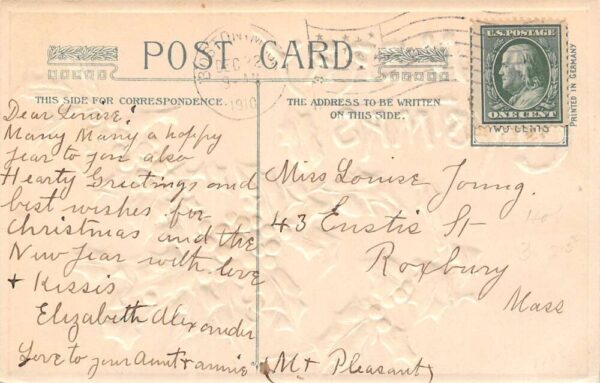 POST CARD.
BOSTON, MASS.
DEC 22
1910
U.S. POSTAGE
ONE CENT
TWO CENTS
PRINTED IN GERMANY
THIS SIDE FOR CORRESPONDENCE.
THE ADDRESS TO BE WRITTEN
ON THIS SIDE.
Dear Louise,
Many Many a happy
year to you also
Hearty Greetings and
best wishes for
Christmas and the
New Year with love
+ Kissis
Elizabeth Alexander
Love to your Aunt + annie
Miss Louise Young.
43 Eustis St
Roxbury
Mass
(Mt Pleasant)